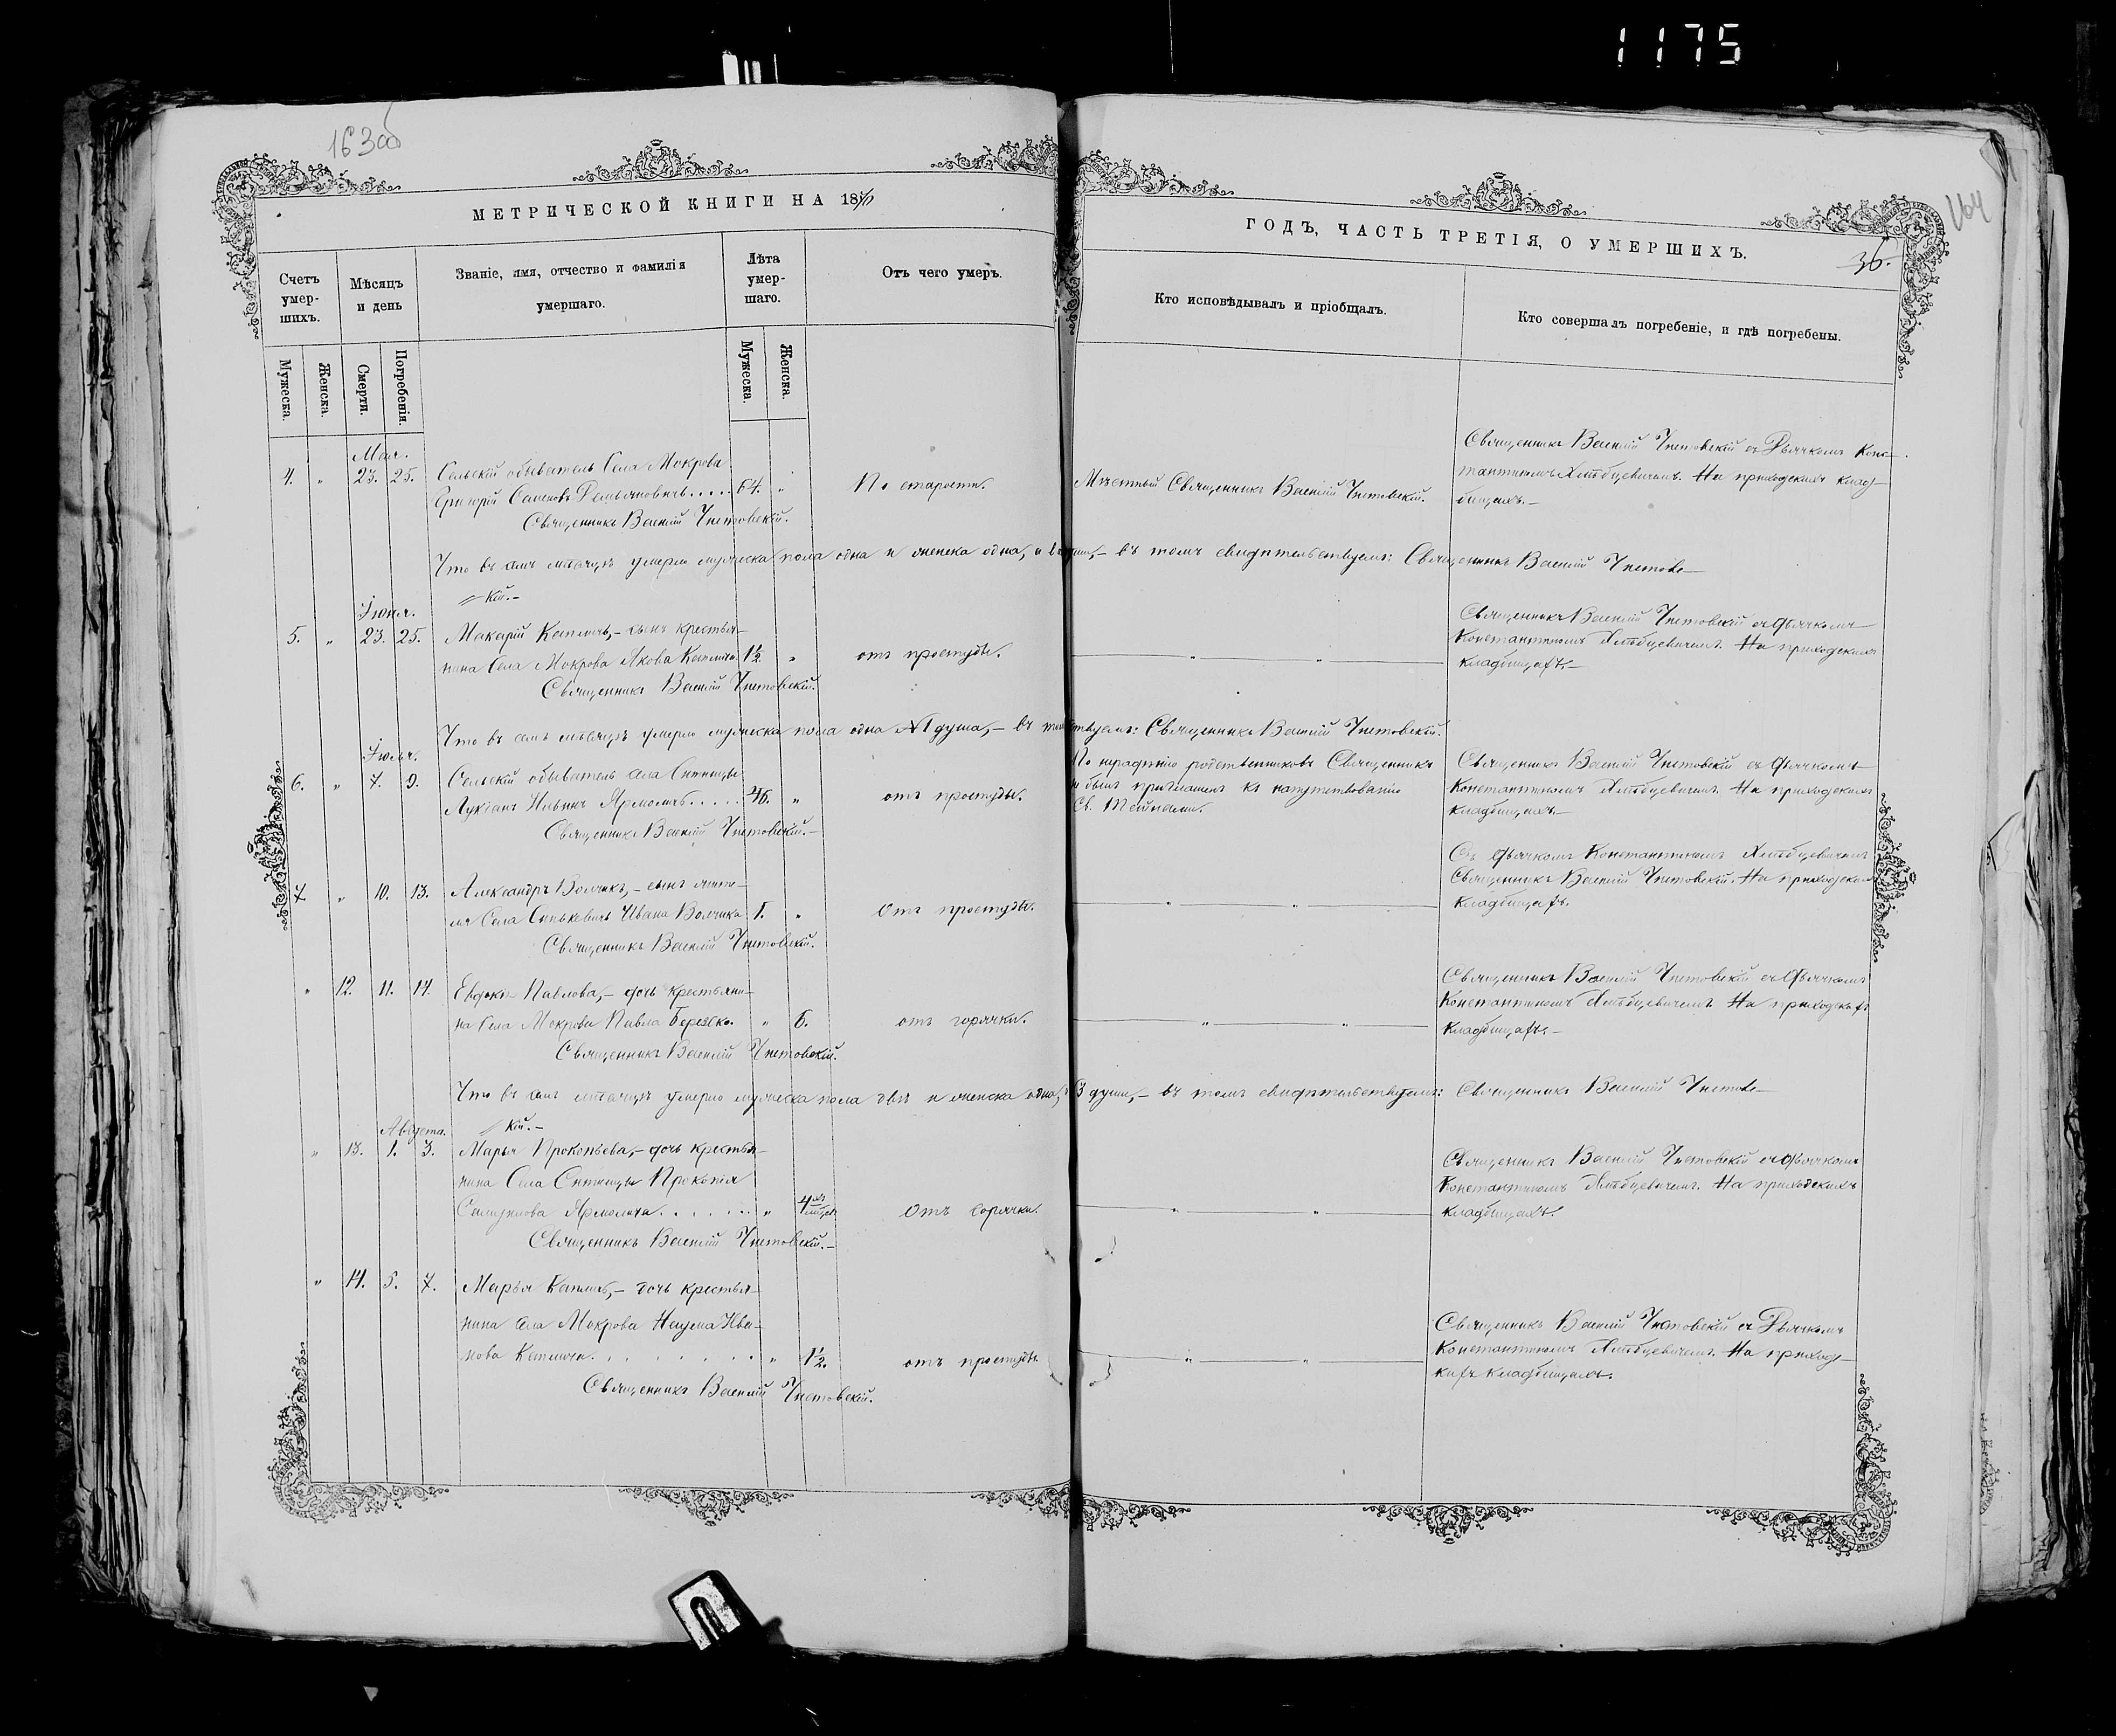 1175
163об
164
МЕТРИЧЕСКОЙ КНИГИ НА 18
ГОДЪ, ЧАСТЬ ТРЕТІЯ, О УМЕРШИХЪ.
36.
Счетъ умер-шихъ.
Мѣсяцъ и день
Званіе, имя, отчество и фамилія
умершаго.
Лѣта умер-шаго.
Отъ чего умеръ.
Кто исповѣдывалъ и пріобщалъ.
Кто совершалъ погребеніе, и гдѣ погребены.
Мужеска.
Женска.
Смерти.
Погребенія.
Мужеска.
Женска.
Мая.
4. " 23. 25. Сельскій обыватель Села Мокрова
Григорій Семеновъ Демьяновичъ..... 64. " По старости.
Священникъ Василій Чистовскій.
Мѣстный Священникъ Василій Чистовскій.
Священникъ Василій Чистовскій съ Дьячкомъ Конс-
тантиномъ Хлѣбцевичемъ. На приходскихъ клад-
бищахъ.-
Что въ семъ мѣсяцѣ умерло мужеска пола одна и женска одна, и души,- въ томъ свидѣтельствуемъ: Священникъ Василій Чистовс-
кій.-
Іюня.
5. " 23. 25. Макарій Капличъ,- сынъ крестья-
нина Села Мокрова Якова Каплича 1½ " отъ простуды. " "
Священникъ Василій Чистовскій.
Священникъ Василій Чистовскій съ Дьячкомъ
Константиномъ Хлѣбцевичемъ. На приходскихъ
кладбищахъ.-
Что въ семъ мѣсяцѣ умерло мужеска пола одна 1 душа,- въ Священникъ Василій Чистовскій.
Іюля.
6. " 7. 9. Сельскій обыватель села Ситницы
Лукіанъ Ильинъ Ярмоличъ..... 46. " отъ простуды.
Священникъ Василій Чистовскій.-
По нерадѣнію родственниковъ Священникъ
не былъ приглашенъ къ напутствованію
Св. Тайнами.
Священникъ Василій Чистовскій съ Дьячкомъ
Константиномъ Хлѣбцевичемъ. На приходскихъ
кладбищахъ.-
7 " 10. 13. Александръ Волчикъ,- сынъ жите-
ля Села Синкевичъ Ивана Волчика 1. " Отъ простуды. " "
Священникъ Василій Чистовскій.
Съ Дьячкомъ Константиномъ Хлѣбцевичемъ
Священникъ Василій Чистовскій. На приходскихъ
кладбищахъ.
" 12. 11. 14. Евдокія Павлова,- дочь крестьяни-
на Села Мокрова Павла Березко. " 6. отъ горячки. " "
Священникъ Василій Чистовскій.
Священникъ Василій Чистовскій съ Дьячкомъ
Константиномъ Хлѣбцевичемъ На приходскихъ
кладбищахъ.-
Что въ семъ мѣсяцѣ умерло мужеска пола двѣ и женска одна, 3 души,- въ томъ свидѣтельствуемъ: Священникъ Василій Чистовс-
кій.-
Августа.
" 13. 1. 3. Марья Прокопьева,- дочь крестья-
нина Села Ситницы Прокопія
Самуилова Ярмолича....... " 4 Отъ горячки. " "
Священникъ Василій Чистовскій.-
Священникъ Василій Чистовскій съ Дьячкомъ
Константиномъ Хлѣбцевичемъ. На приходскихъ
кладбищахъ.
" 14. 5. 7. Марья Капличъ,- дочь крестья-
нина села Мокрова Наума Ива-
нова Каплича........ " 1½. отъ простуды. " "
Священникъ Василій Чистовскій.
Священникъ Василій Чистовскій съ Дьячкомъ
Константиномъ Хлѣбцевичемъ. На приходс-
кихъ кладбищахъ.